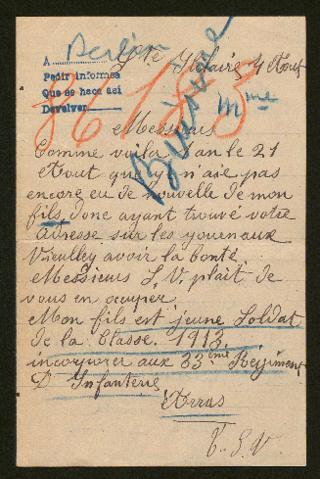 A Berlin
Pedir informes
Que se hace asi
Devolver
86183
Mme
Buisine
Ste Hilaire 4 Aout
Messieurs
Comme voila un an le 21
Aout que y n'aie pas
encore eu de nouvelle de mon
fils donc ayant trouvé votre
adresse sur les journaux
Vieulley avoir la bonté
Messieurs S. V. plait de
vous en occuper
Mon fils est jeune Soldat
de la Classe. 1913
incorporer aux 33eme Regiment
D Infanterie
Arras
T. S. V.